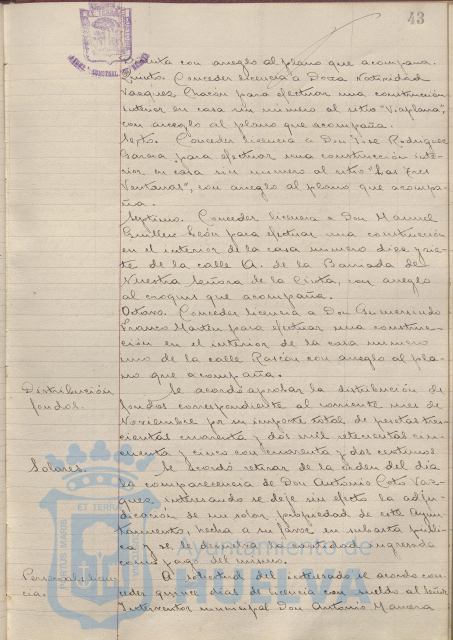 43
cuenta con arreglo al plano que acompaña.
Quinto. Conceder licencia a Doña Natividad
Vazquez Chacón para efectuar una construcción
interior en casa sin numero al sitio "Viaplana",
con arreglo al plano que acompaña.
Septo. Conceder licencia a Don José Rodriguez
Garcia para efectuar una construcción inte-
rior en casa sin numero al sitio "Las Tres
Ventanas", con arreglo al plano que acompa-
ña.
Septimo. Conceder licencia a Don Manuel
Guillen León para efectuar una construcción
en el interior de la casa numero diez y sie-
te de la calle A. de la Barriada de
Nuestra Señora de la Cinta, con arreglo
al croquis que acompaña.
Octavo. Conceder licencia a Don Gumersindo
Franco Martín para efectuar una construc-
ción en el interior de la casa numero
uno de la calle Rascón con arreglo al pla-
no que acompaña.
Distribución
fondos.
Se acordó aprobar la distribución de
fondos correspondiente al corriente mes de
Noviembre por su importe total de pesetas tres-
cientas cuarenta y dos mil setecientas cin-
cuenta y cinco con cuarenta y dos centimos
Solares.
Se acordó retirar de la orden del dia
la comparecencia de Don Antonio Coto Vaz-
quez interesando se deje sin efecto la adju-
dicación de un solar propiedad de este Ayun-
tamiento, hecha a su favor en subasta públi-
ca y se le devuelva la cantidad ingresada
como pago del mismo.
Personal licen
cia.
A solicitud del interesado se acordo con-
ceder quince dias de licencia con sueldo al Señor
Interventor municipal Don Antonio
ET TERRÆ
PORTUS MARIS
Ayuntamiento de
HUELVA